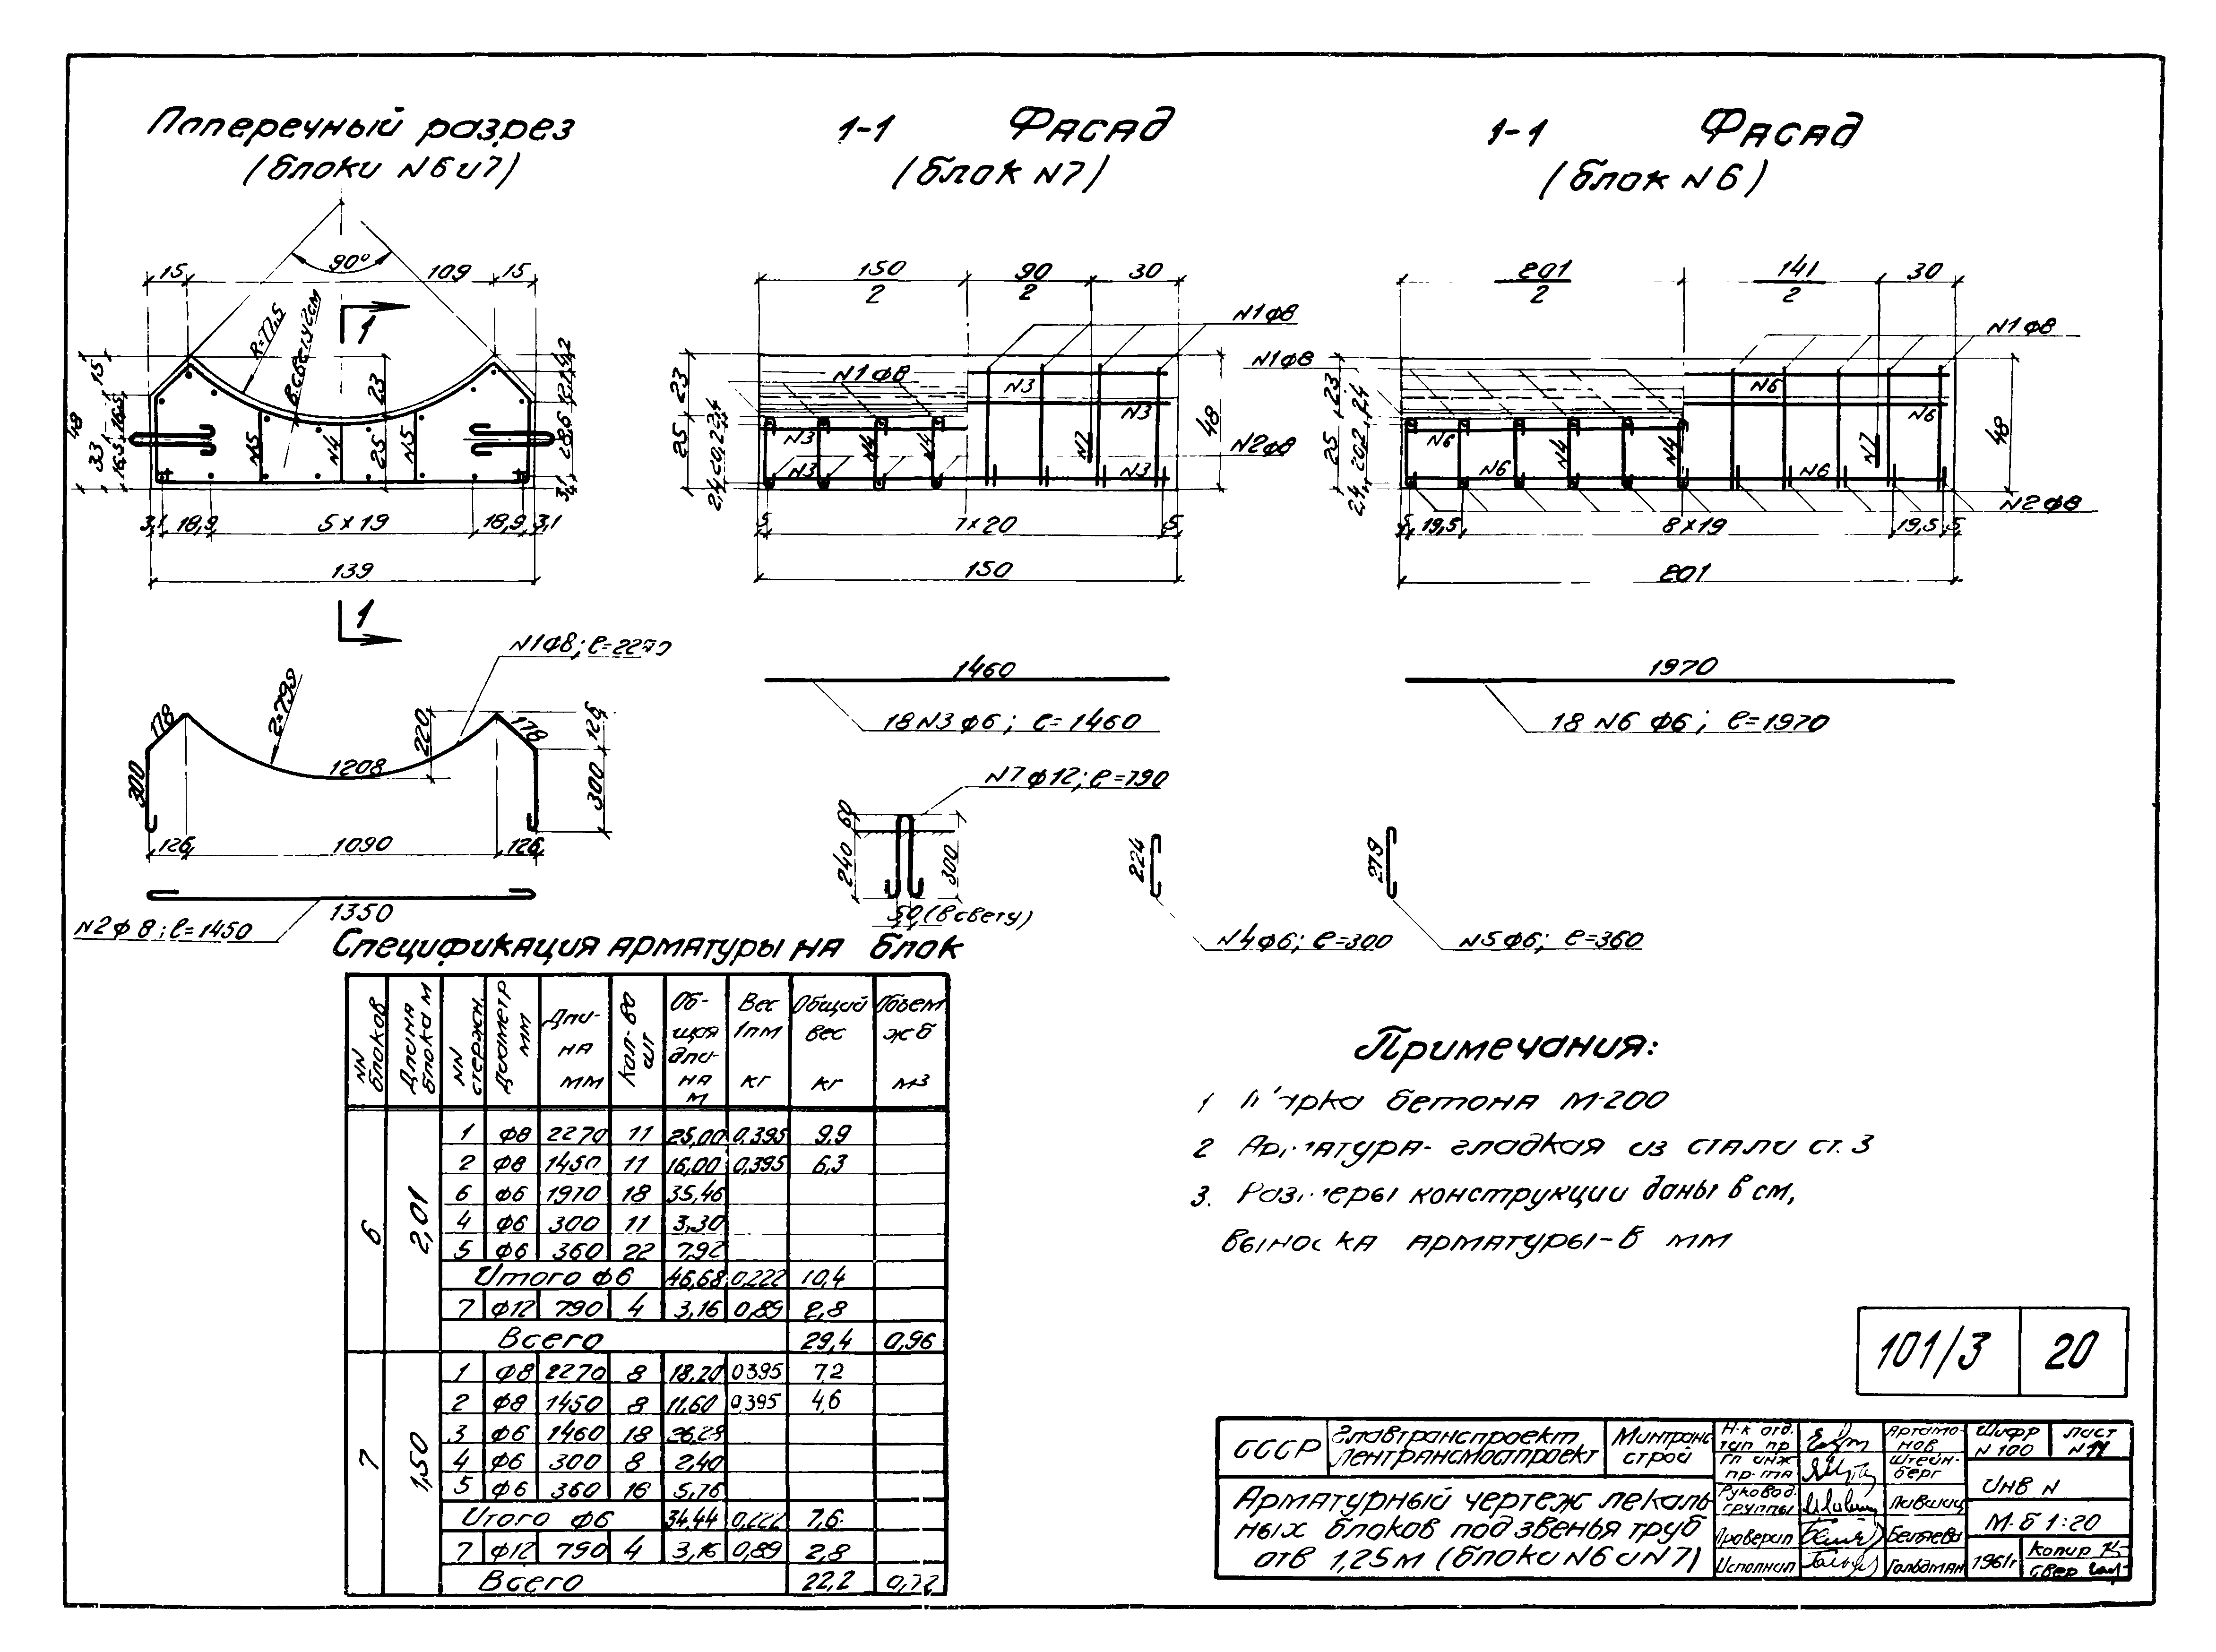 Поперечный разрез
(блоки N6 и 7)
1-1 Фасад
(блок N7)
1-1 Фасад
(блок N6)
90°
15 109 15
R=77,5
В свету 2см
1
15
48
33
16,5 16,5
23
25
N5 N4 N5
4,2
12,1
28,6
3,1
3,1 18,9 5×19 18,9 3,1
139
1
150/2 90/2 30
N1ф8
N1ф8
23
25
2,4 20,2 2,4
N3 N3
N3 N4 N4 N7
N3 N3
48
N2ф8
5 7×20 5
150
201/2 141/2 30
N1ф8
N1ф8
23
25
2,4 20,2 2,4
N6 N6
N6 N4 N4 N7
N6 N6
48
N2ф8
5 19,5 8×19 19,5 5
201
N1ф8; ℓ=2270
178
r=799
220
178
126
1208
300
300
126 1090 126
1350
N2ф8; ℓ=1450
1460
18N3ф6; ℓ=1460
1970
18 N6 ф6; ℓ=1970
N7ф12; ℓ=790
60
240
300
50 (в свету)
224
N4ф6; ℓ=300
279
N5ф6; ℓ=360
Спецификация арматуры на блок
NN блоков | Длина блока м | NN стержн. | Диаметр мм | Длина мм | Кол-во шт | Общая длина м | Вес 1пм кг | Общий вес кг | Объем жб м³
6 2,01
1 ф8 2270 11 25,00 0,395 9,9
2 ф8 1450 11 16,00 0,395 6,3
6 ф6 1970 18 35,46
4 ф6 300 11 3,30
5 ф6 360 22 7,92
Итого ф6 46,68 0,222 10,4
7 ф12 790 4 3,16 0,89 2,8
Всего 29,4 0,96
7 1,50
1 ф8 2270 8 18,20 0395 7,2
2 ф8 1450 8 11,60 0,395 4,6
3 ф6 1460 18 26,28
4 ф6 300 8 2,40
5 ф6 360 16 5,76
Итого ф6 34,44 0,222 7,6
7 ф12 790 4 3,16 0,89 2,8
Всего 22,2 0,72
Примечания:
1 Марка бетона М-200
2 Арматура- гладкая из стали ст. 3
3. Размеры конструкции даны в см,
выноска арматуры-в мм
101/3 20
СССР
Главтранспроект
Лентрансмостпроект
Минтранс
строй
Арматурный чертеж лекаль
ных блоков под звенья труб
отв 1,25м (блоки N6 и N7)
Н-к отд. тип пр Артамонов
Гл инж пр-та Штейнберг
Руковод. группы Лившиц
Проверил Беляева
Исполнил Гольдман
Шифр N 100
лист N 11
Инв N
М-б 1:20
1961г
Копир
Свер